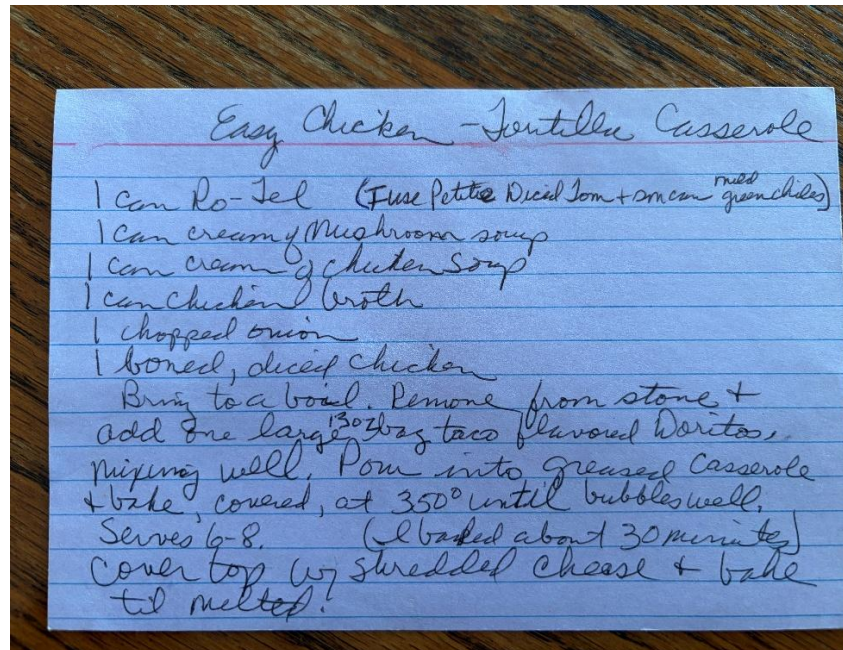 Easy Chicken - Tortilla Casserole
1 can Ro-Tel (I use Petite Diced Tom + sm can mild green chiles)
1 can cream of Mushroom soup
1 can cream of chicken soup
1 can chicken broth
1 chopped onion
1 boned, diced chicken
Bring to a boil. Remove from stove +
add one large 13oz bag taco flavored Doritos,
mixing well. Pour into greased casserole
+ bake, covered, at 350° until bubbles well.
Serves 6-8. (I baked about 30 minutes)
Cover top w/ shredded cheese + bake
til melted!